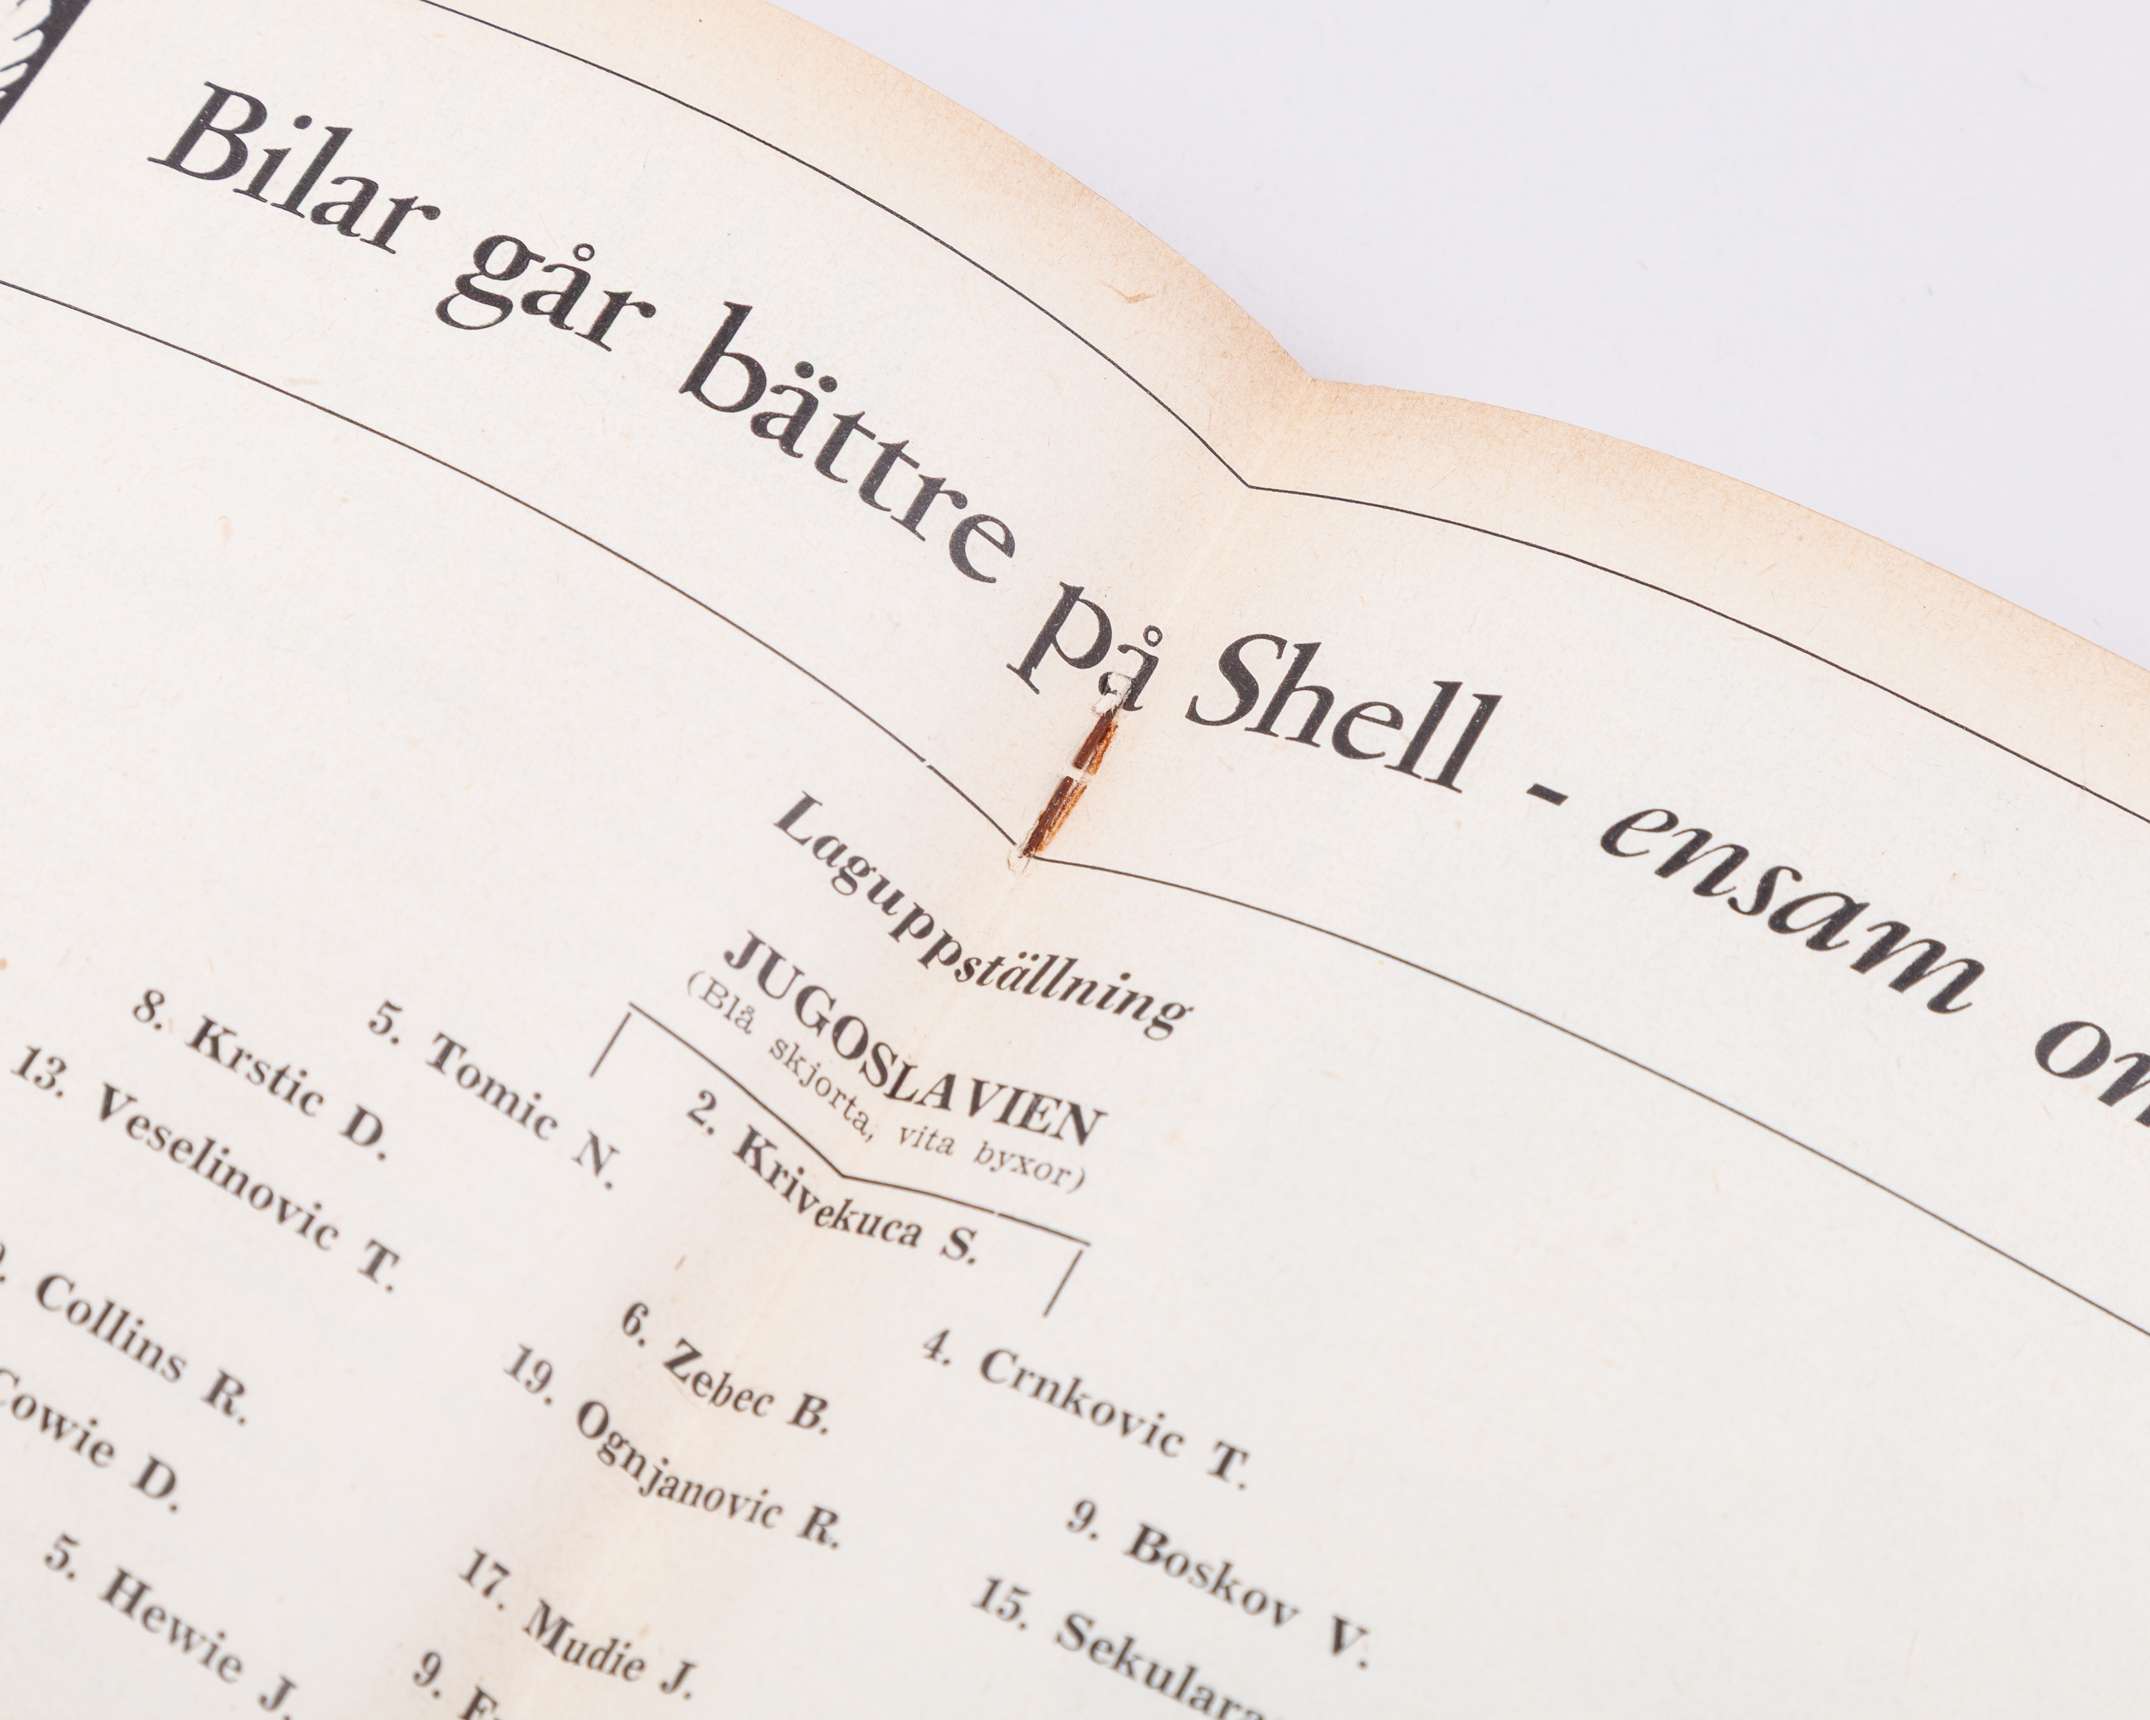 Bilar går bättre på Shell - ensam om
Laguppställning
JUGOSLAVIEN
(Blå skjorta, vita byxor)
2. Krivekuca S.
5. Tomic N.
6. Zebec B.
4. Crnkovic T.
8. Krstic D.
9. Boskov V.
13. Veselinovic T.
19. Ognjanovic R.
15. Sekularac
Collins R.
Cowie D.
17. Mudie J.
5. Hewie J.
9.